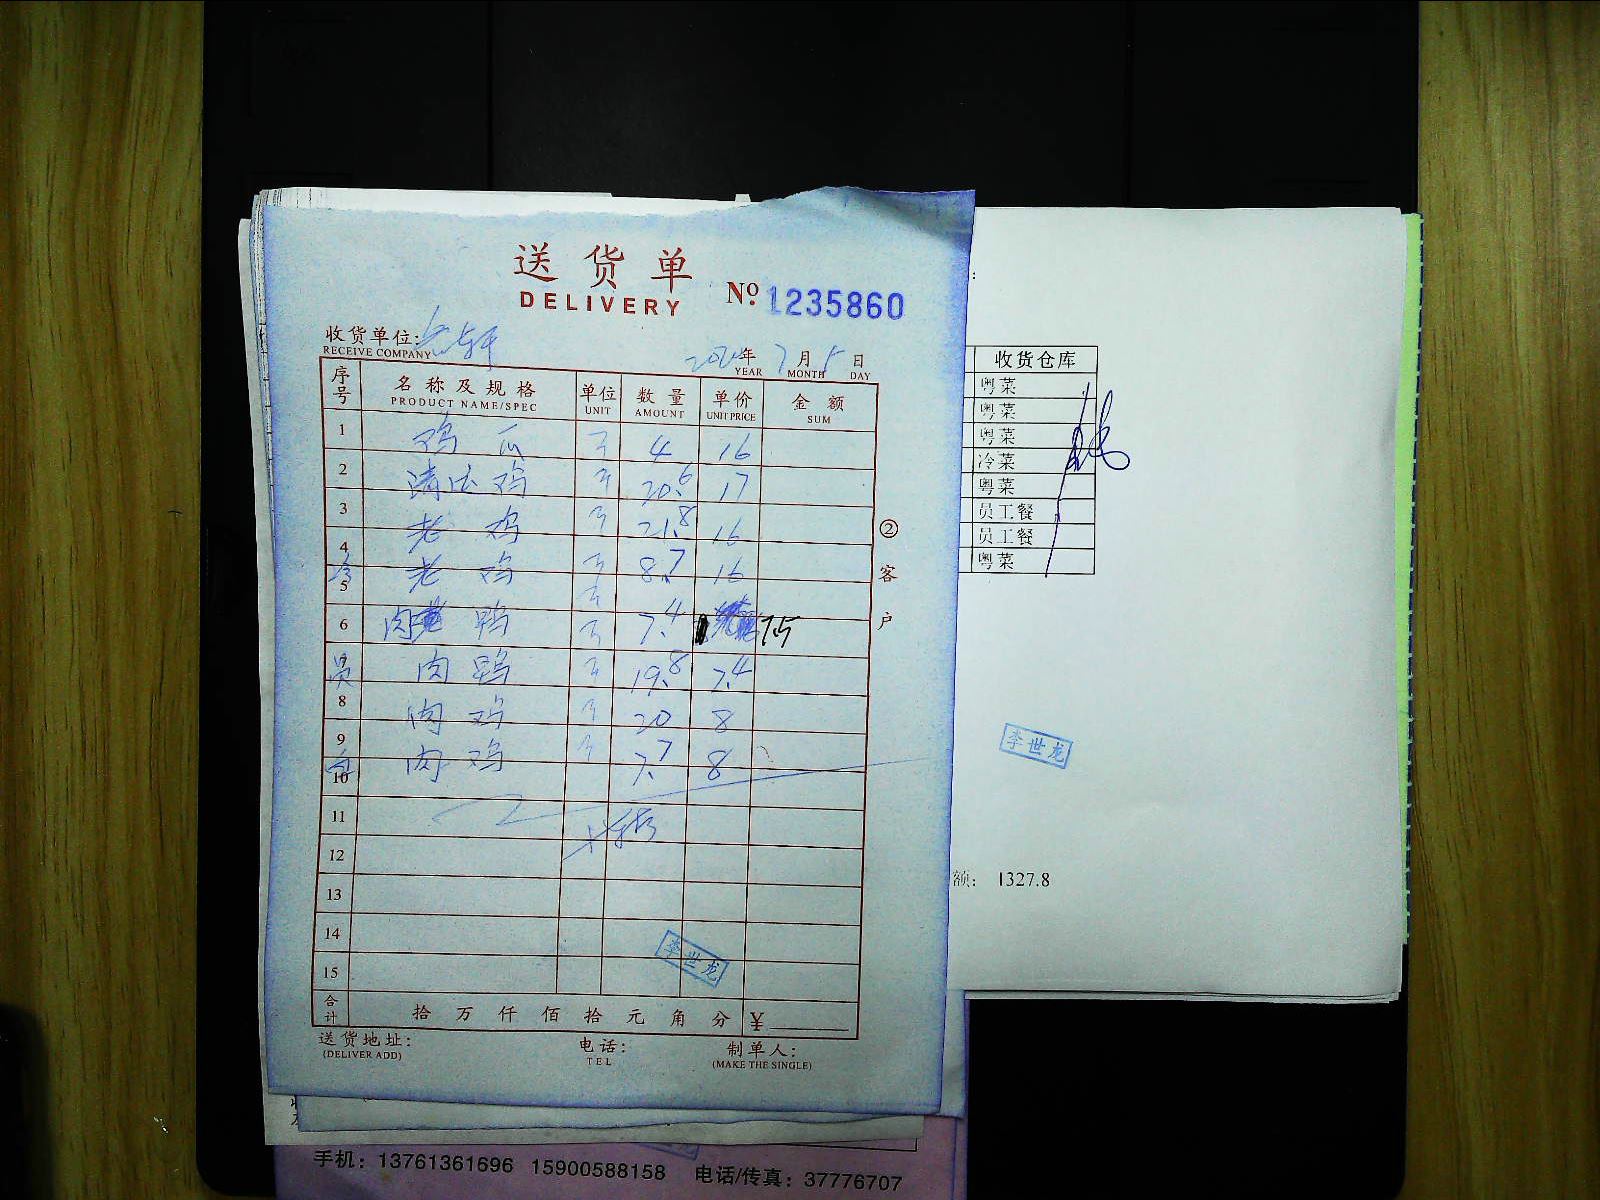 送货单
DELIVERY
No. 1235860
收货单位:
RECEIVE COMPANY
2020年 7月 5日
YEAR MONTH DAY
序号 名称及规格 单位 数量 单价 金额
PRODUCT NAME/SPEC UNIT AMOUNT UNIT PRICE SUM
1 鸡 瓜 斤 4 16
2 清远鸡 斤 20.6 17
3 老 鸡 斤 21.8 16
4 老 鸡 斤 8.7 16
5 斤
6 肉 鸭 斤 7.4 7.5
7 员 肉 鸭 斤 19.8 7.4
8 肉 鸡 斤 20 8
9 肉 鸡 斤 7.7 8
10
11
12
13
14
15
李世龙
合计 拾 万 仟 佰 拾 元 角 分 ¥
送货地址: 电话: 制单人:
(DELIVER ADD) TEL (MAKE THE SINGLE)
② 客户
手机: 13761361696 15900588158 电话/传真: 37776707
:
收货仓库
粤菜
粤菜
粤菜
冷菜
粤菜
员工餐
员工餐
粤菜
李世龙
额: 1327.8